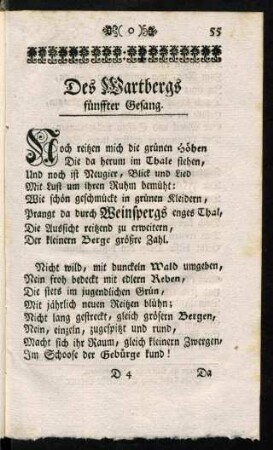 o 55
Des Wartbergs
fünffter Gesang.
Noch reitzen mich die grünen Höhen
Die da herum im Thale stehen,
Und noch ist Neugier, Blick und Lied
Mit Lust um ihren Ruhm bemüht:
Wie schön geschmückt in grünen Kleidern,
Prangt da durch Weinspergs enges Thal,
Die Aussicht reitzend zu erweitern,
Der kleinern Berge größre Zahl.
Nicht wild, mit dunckeln Wald umgeben,
Nein froh bedeckt mit edlern Reben,
Die stets im jugendlichen Grün,
Mit jährlich neuen Reitzen blühn;
Nicht lang gestreckt, gleich grösern Bergen,
Nein, einzeln, zugespitzt und rund,
Macht sich ihr Raum, gleich kleinern Zwergen,
Im Schoose der Gebürge kund!
D 4 Da